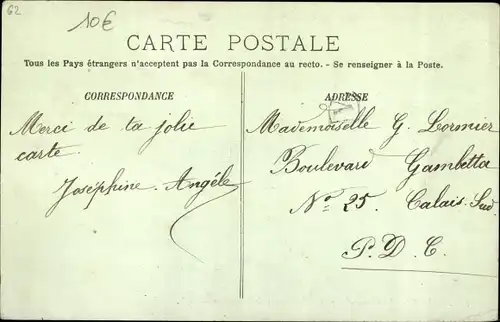 62
10€
CARTE POSTALE
Tous les Pays étrangers n'acceptent pas la Correspondance au recto. - Se renseigner à la Poste.
CORRESPONDANCE
Merci de ta jolie
carte.
Joséphine. Angéle
ADRESSE
Mademoiselle G. Lormier
Boulevard Gambetta
Nº 25. Calais-Sud
P. D. C.